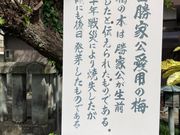 勝家公愛用の梅
梅の木は勝家公が生前
したと伝えられたものである。
十年戦災により焼失したが
にも後日発芽したものである